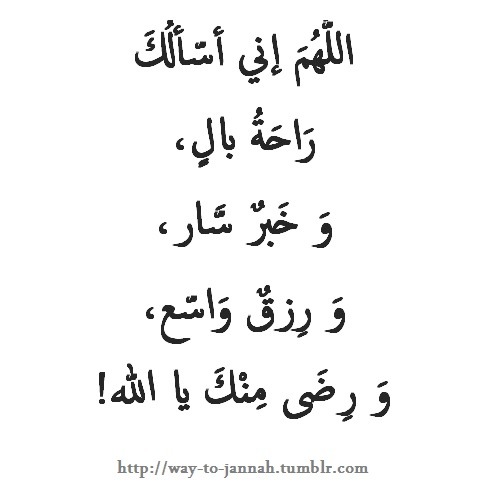 اللَّهُمَ إني أسّألُكَ
رَاحَةُ بالٍ،
وَ خَبرٌ سَّار،
وَ رِزقٌ وَاسّع،
وَ رِضَى مِنْكَ يا الله!
http://way-to-jannah.tumblr.com